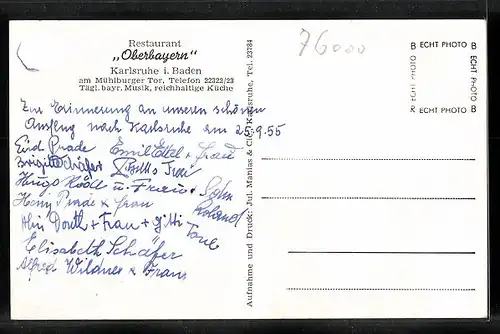 Restaurant
„Oberbayern“
Karlsruhe i. Baden
am Mühlburger Tor, Telefon 22322/23
Tägl. bayr. Musik, reichhaltige Küche
Zur Erinnerung an unseren schönen
Ausflug nach Karlsruhe am 25.9.55
Emil Ettel + Frau
Brigitte Schäfer
Hugo u. Frau Sohn
Roland
+ Frau
+ Frau + Gitti
Elisabeth Schäfer
Alfred Wildner + Frau
Aufnahme und Druck: Jul. Manias & Cie., Karlsruhe, Tel. 23784
76000
B ECHT PHOTO B
ECHT PHOTO
ECHT PHOTO
R ECHT PHOTO B